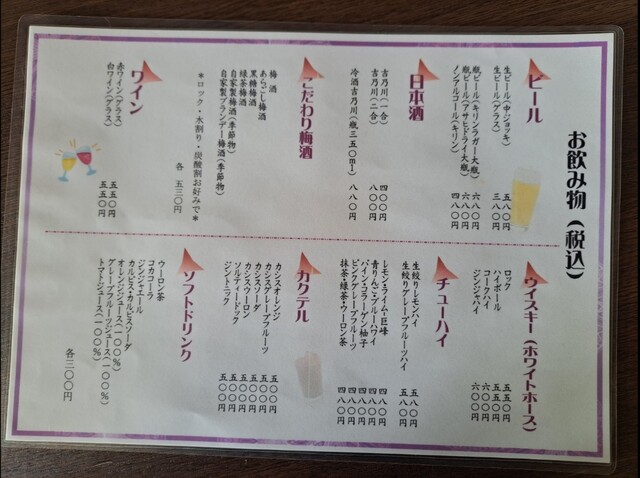 お飲み物（税込）
ビール
生ビール（中・ジョッキ） 五八〇円
生ビール（グラス） 三八〇円
瓶ビール（キリンラガー大瓶） 六八〇円
瓶ビール（アサヒドライ大瓶） 六八〇円
ノンアルコール（キリン） 四八〇円
日本酒
吉乃川（一合） 四〇〇円
吉乃川（二合） 八〇〇円
冷酒吉乃川（瓶三五〇ml） 八八〇円
こだわり梅酒
梅酒
あらごし梅酒
黒糖梅酒
緑茶梅酒
自家製梅酒（季節物）
自家製ブランデー梅酒（季節物）
＊ロック・水割り・炭酸割お好みで＊
各 五三〇円
ワイン
赤ワイン（グラス） 五五〇円
白ワイン（グラス） 五五〇円
ウイスキー（ホワイトホース）
ロック 五五〇円
ハイボール 五五〇円
コークハイ 六〇〇円
ジンジャハイ 六〇〇円
チューハイ
生絞りレモンハイ 五八〇円
生絞りグレープフルーツハイ 五八〇円
レモン・ライム・巨峰 四八〇円
青りんご・ブルーハワイ 四八〇円
パイン・コラーゲン柚子 四八〇円
ピンクグレープフルーツ 四八〇円
抹茶・緑茶・ウーロン茶 四八〇円
カクテル
カシスオレンジ 五〇〇円
カシスグレープフルーツ 五〇〇円
カシスソーダ 五〇〇円
カシスウーロン 五〇〇円
ソルティードック 五〇〇円
ジントニック 五〇〇円
ソフトドリンク
ウーロン茶
コカコーラ
ジンジャエール
カルピス・カルピスソーダ
オレンジジュース（一〇〇％）
グレープフルーツジュース（一〇〇％）
トマトジュース（一〇〇％）
各三〇〇円